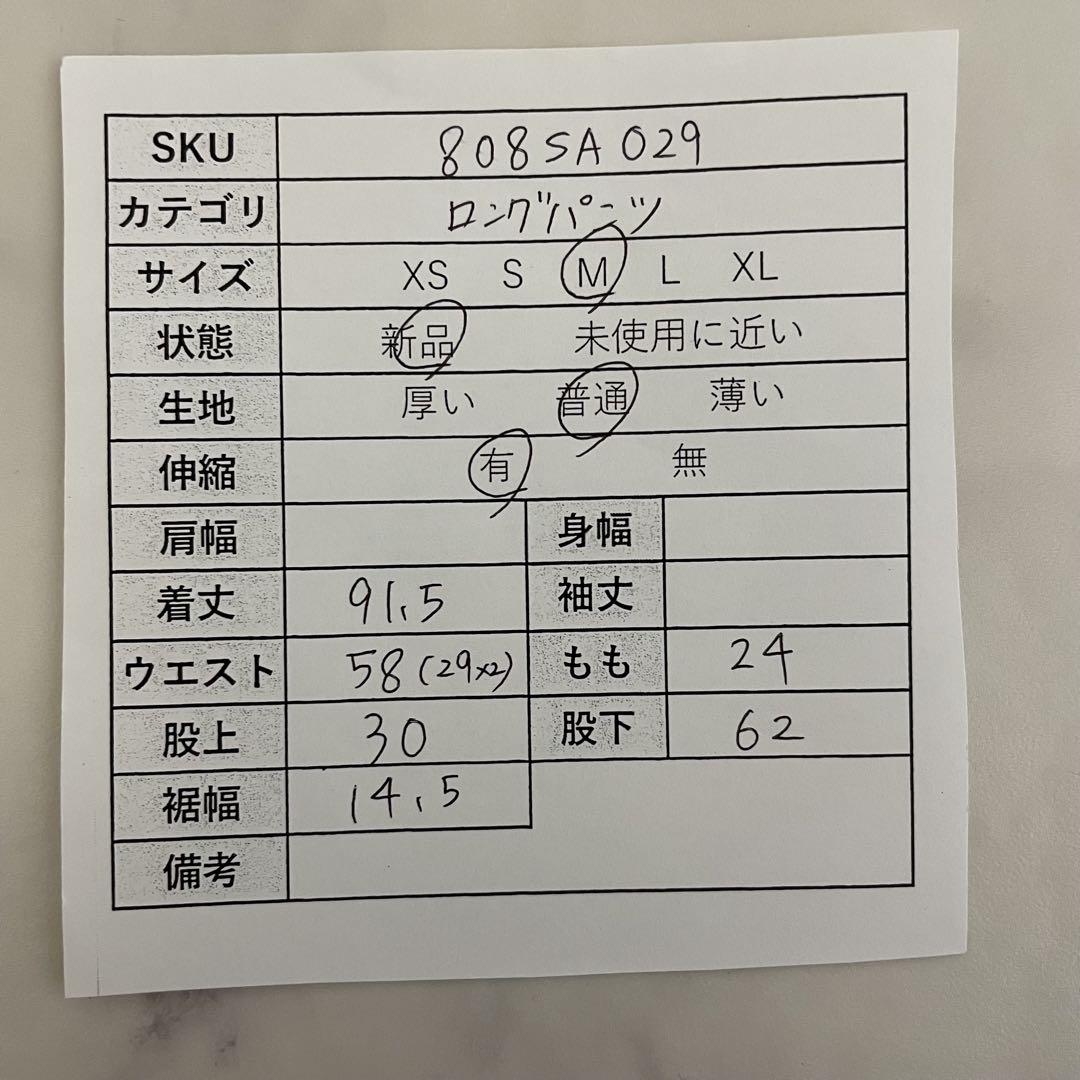 SKU 808SA029
カテゴリ ロングパンツ
サイズ XS S M L XL
状態 新品 未使用に近い
生地 厚い 普通 薄い
伸縮 有 無
肩幅 身幅
着丈 91.5 袖丈
ウエスト 58(29×2) もも 24
股上 30 股下 62
裾幅 14.5
備考